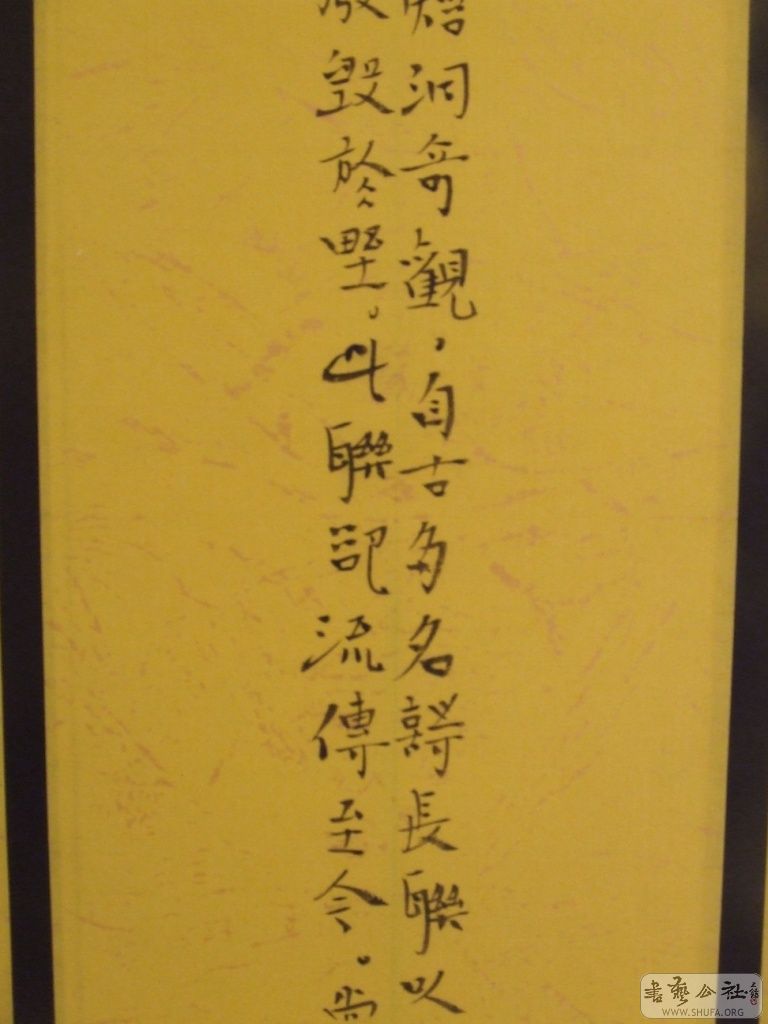 洞奇觀，自古多名詩長聯以
毀於野。此聯記流傳至今。尚
書藝公社
WWW.SHUFA.ORG